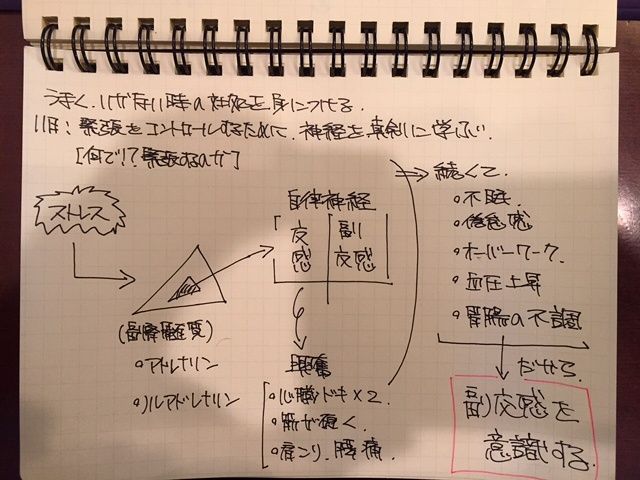 うまくいかない時の対処を身につける。
11月:緊張をコントロールするために、神経を真剣に学ぶ。
[何で!?緊張するのか]
ストレス
(副腎髄質)
・アドレナリン
・ノルアドレナリン
自律神経
交感
副交感
興奮
・心臓ドキ×2
・筋が硬く。
・肩こり、腰痛
⇒ 続くと、
・不眠。
・倦怠感
・オーバーワーク。
・血圧上昇
・胃腸の不調
だから
副交感を
意識する。